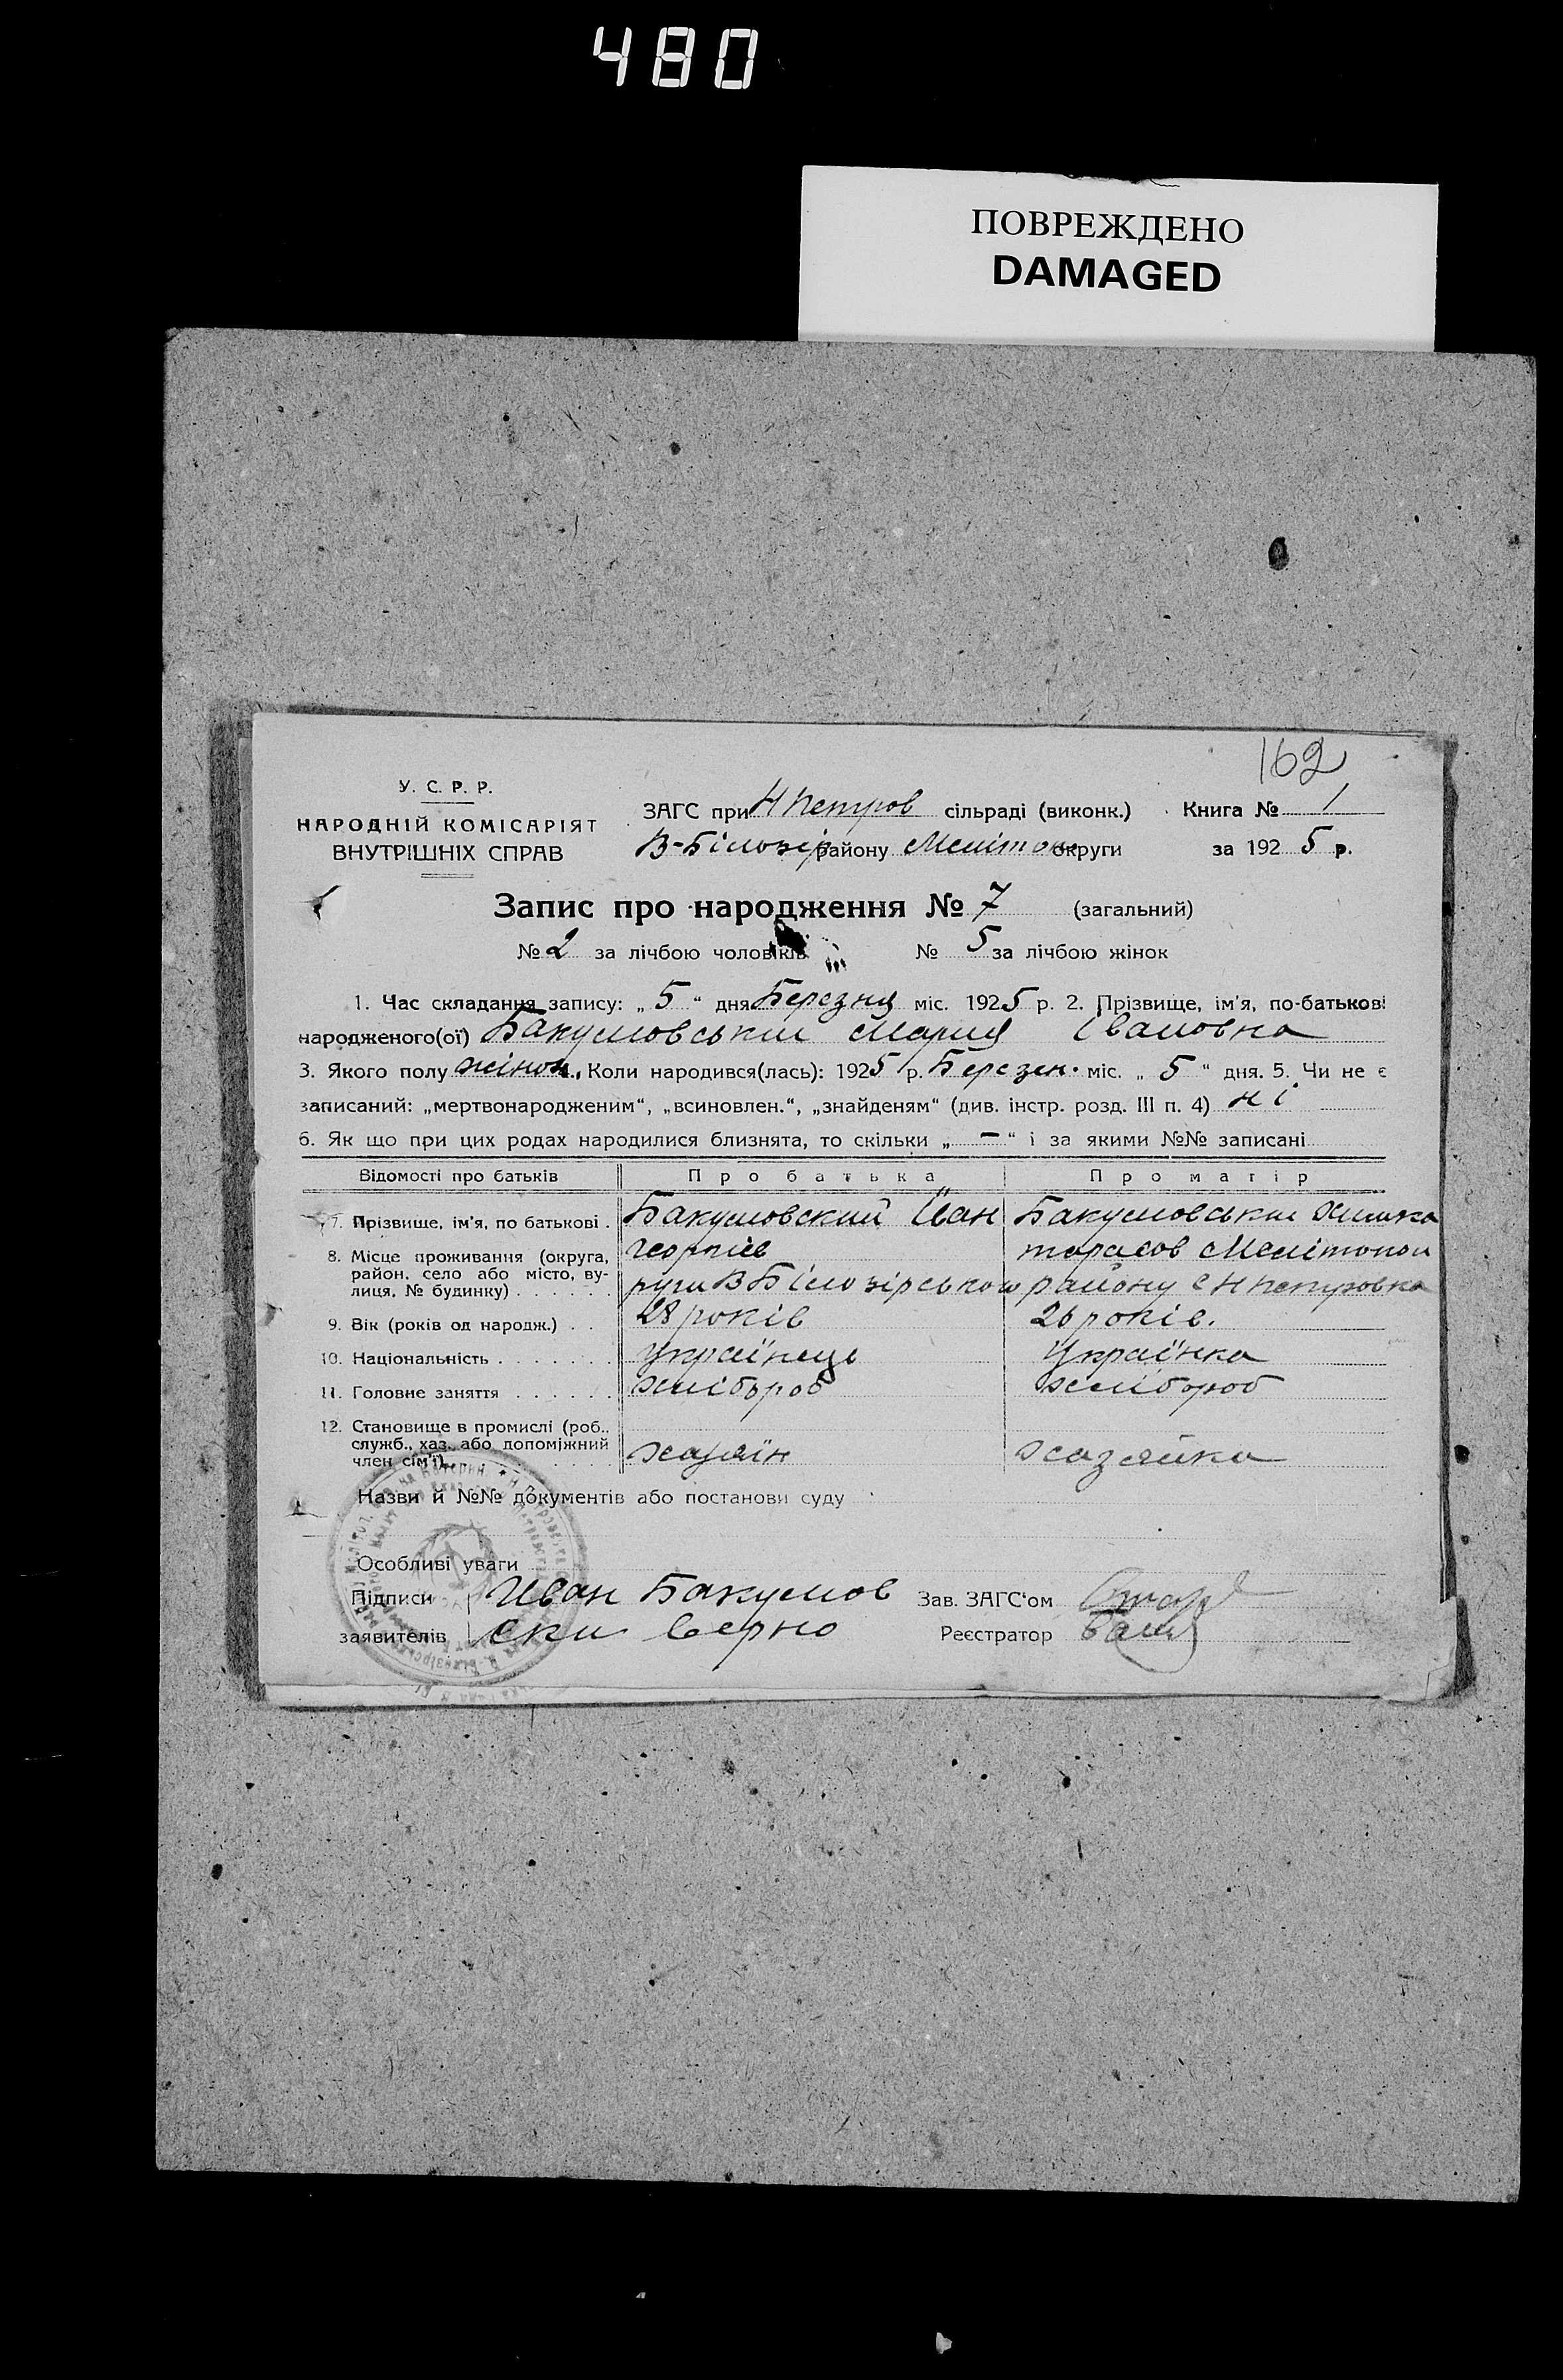 480
ПОВРЕЖДЕНО
DAMAGED
162
У. С. Р. Р.
НАРОДНІЙ КОМІСАРІЯТ
ВНУТРІШНІХ СПРАВ
ЗАГС при Н Петров сільраді (виконк.) Книга № 1
В-Білозір району Меліто округи за 1925 р.
Запис про народження № 7 (загальний)
№ 2 за лічбою чоловіків № 5 за лічбою жінок
1. Час складання запису: „ 5 “ дня Березня міс. 1925 р. 2. Прізвище, ім'я, по-батькові
народженого(ої) Бакумовськи Мария Івановна
3. Якого полу жіноч., Коли народився(лась): 1925 р. Березен. міс. „ 5 “ дня. 5. Чи не є
записаний: „мертвонародженим“, „всиновлен.“, „знайденям“ (див. інстр. розд. III п. 4) ні
6. Як що при цих родах народилися близнята, то скільки „ — “ і за якими №№ записані
Відомості про батьків Про батька Про матір
7. Прізвище, ім'я, по батькові . Бакумовский Иван Бакумовськи
8. Місце проживання (округа, Георгіев тарасов Мелітопол
район, село або місто, ву-
лиця, № будинку) . . . . . . руги В Білозірського району с Н петровка
9. Вік (років од народж.) . . 28 років 26 років.
10. Національність . . . . . . . Українець Українка
11. Головне заняття . . . . . . хлібороб хлібороб
12. Становище в промислі (роб.,
служб., хаз., або допоміжний
член сім'ї) . . . . хазяїн хазяйка
Назви й №№ документів або постанови суду
Особливі уваги
Підписи Иван Бакумов Зав. ЗАГС'ом
заявителів ски верно Реєстратор